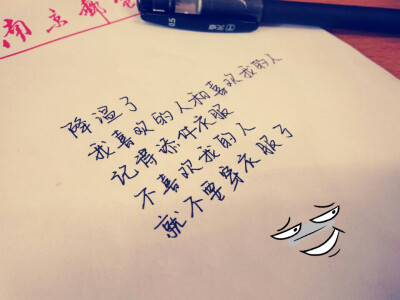 南京邮电
0.5
降温了
我喜欢的人和喜欢我的人
记得添件衣服
不喜欢我的人
就不要穿衣服了